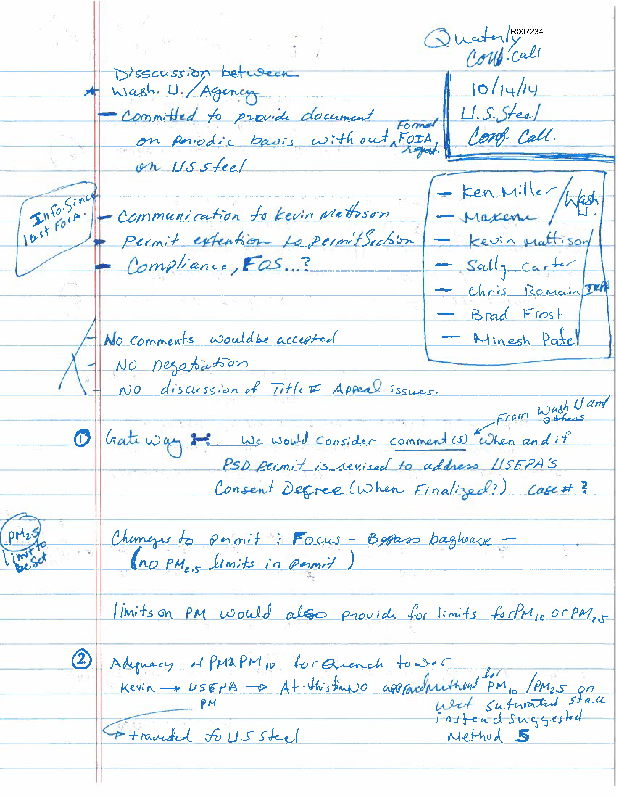 R007234
Quaterly
Conf. call
10/14/14
U.S. Steel
Conf Call.
Disscussion between
* Wash. U. / Agency
- Committed to provide document
on periodic basis without ^ Formal FOIA
on US Steel
- Ken Miller / Wash U.
- Maxene
- Kevin Mattison
- Sally Carter
- Chris Romain
- Brad Frost
- Minesh Patel
Info. Since
last FOIA.
- Communication to Kevin Mattison
- Permit extention to permit Section
- Compliance, FOS...?
- No comments would be accepted
- No negotiation
- No discussion of Title V Appeal issues.
From Wash U and
others
① Gateway : We would consider comment(s) when and if
PSD permit is revised to address USEPA's
Consent Degree (When Finalized?) Case # ?
PM2.5
limit to
be set
Changes to permit : Focus - Bypass baghouse -
(no PM2.5 limits in permit)
limits on PM would also provide for limits for PM10 or PM2.5
② Adequacy of PM & PM10 for Quench tower
Kevin → USEPA → At this time NO for PM10 / PM2.5 on
wet saturated stack
PM
instead suggested
Method 5
→ to US Steel